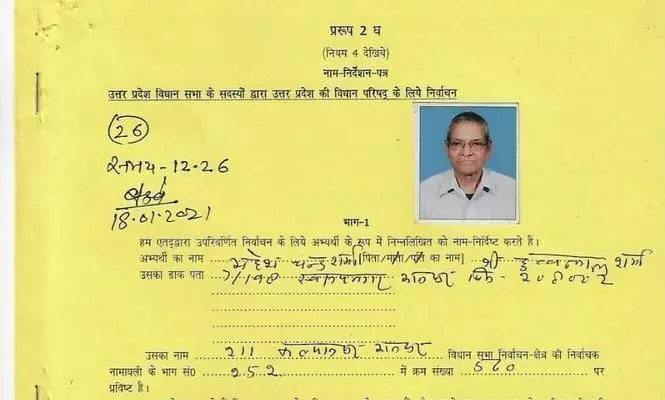 प्ररूप 2 घ
(नियम 4 देखिये)
नाम-निर्देशन-पत्र
उत्तर प्रदेश विधान सभा के सदस्यों द्वारा उत्तर प्रदेश की विधान परिषद् के लिये निर्वाचन
26
समय-12-26
18.01.2021
भाग-1
हम एतद्द्वारा उपरिवर्णित निर्वाचन के लिये अभ्यर्थी के रूप में निम्नलिखित को नाम-निर्दिष्ट करते हैं।
अभ्यर्थी का नाम महेश चन्द्र शर्मा [पिता/माता/पति का नाम] श्री शर्मा
उसका डाक पता 7/198 स्वरूपनगर कानपुर पिन - २०८००२
उसका नाम 211 कल्यानपुर कानपुर विधान सभा निर्वाचन-क्षेत्र की निर्वाचक
नामावली के भाग सं0 252 में क्रम संख्या 560 पर
प्रविष्ट है।